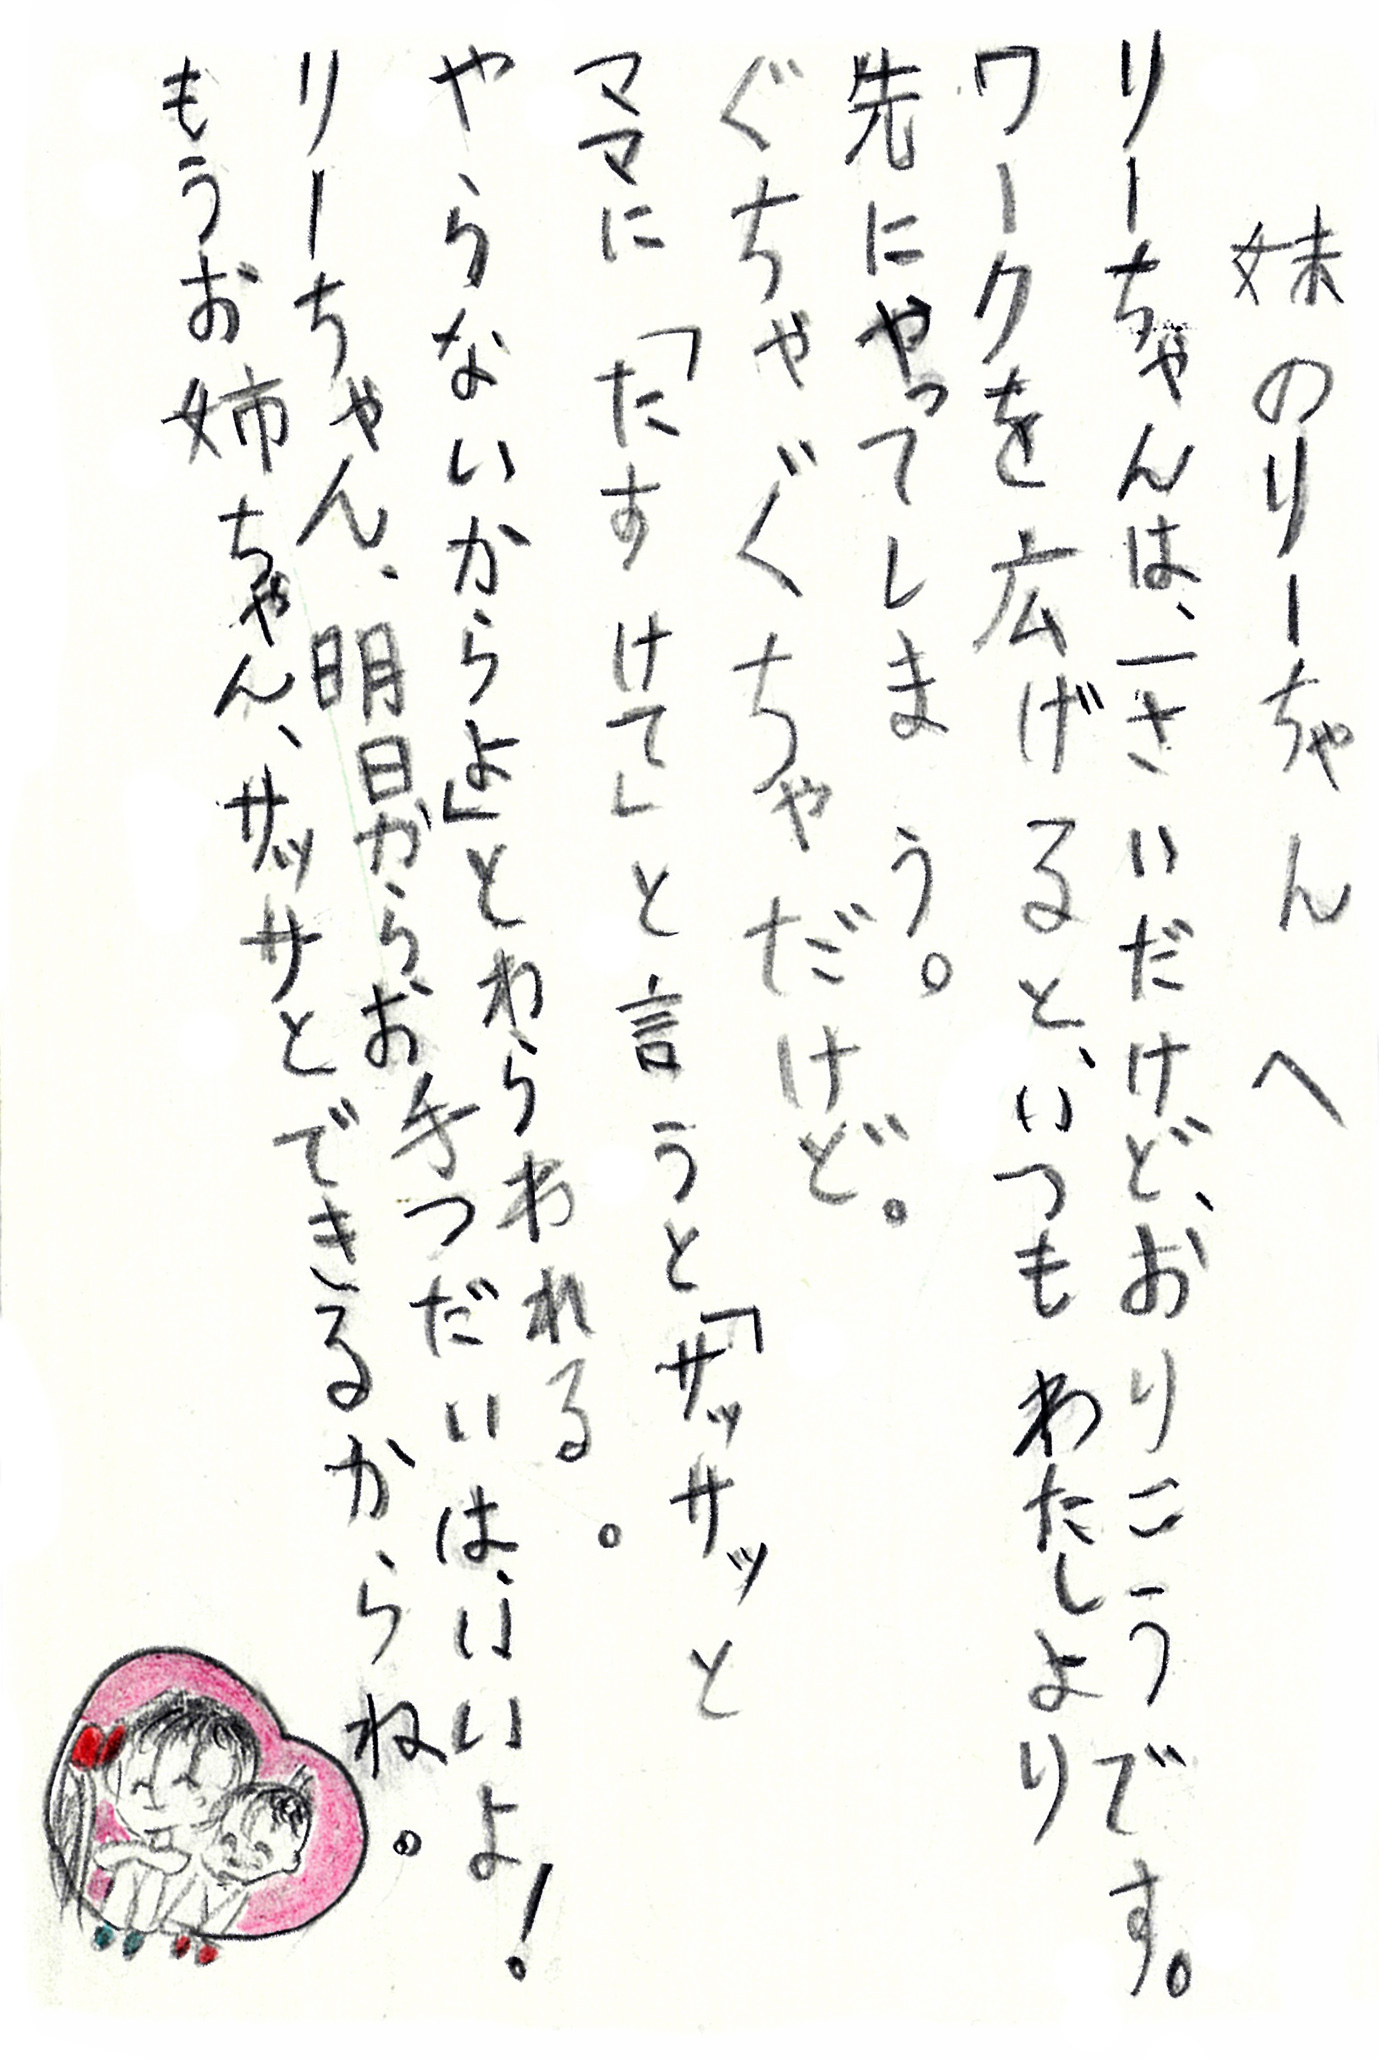 妹のりーちゃんへ
りーちゃんは、一さいだけど、おりこうです。
ワークを広げると、いつもわたしより
先にやってしまう。
ぐちゃぐちゃだけど。
ママに「たすけて」と言うと「サッサッと
やらないからよ」とわらわれる。
りーちゃん、明日からお手つだいは、いいよ!
もうお姉ちゃん、サッサとできるからね。